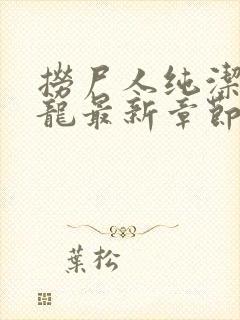 撈尸人纯潔
龍最新章節
葉松